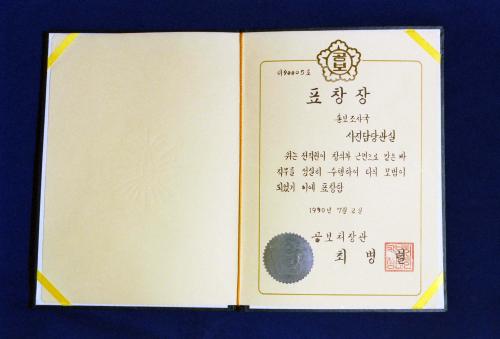 공보
제90005호
표창장
홍보조사국
사진담당관실
위는 전직원이 창의와 근면으로 맡은 바
직무를 성실히 수행하여 타의 모범이
되었기 이에 표창함
1990년 7월 2일
공보처장관
최병렬